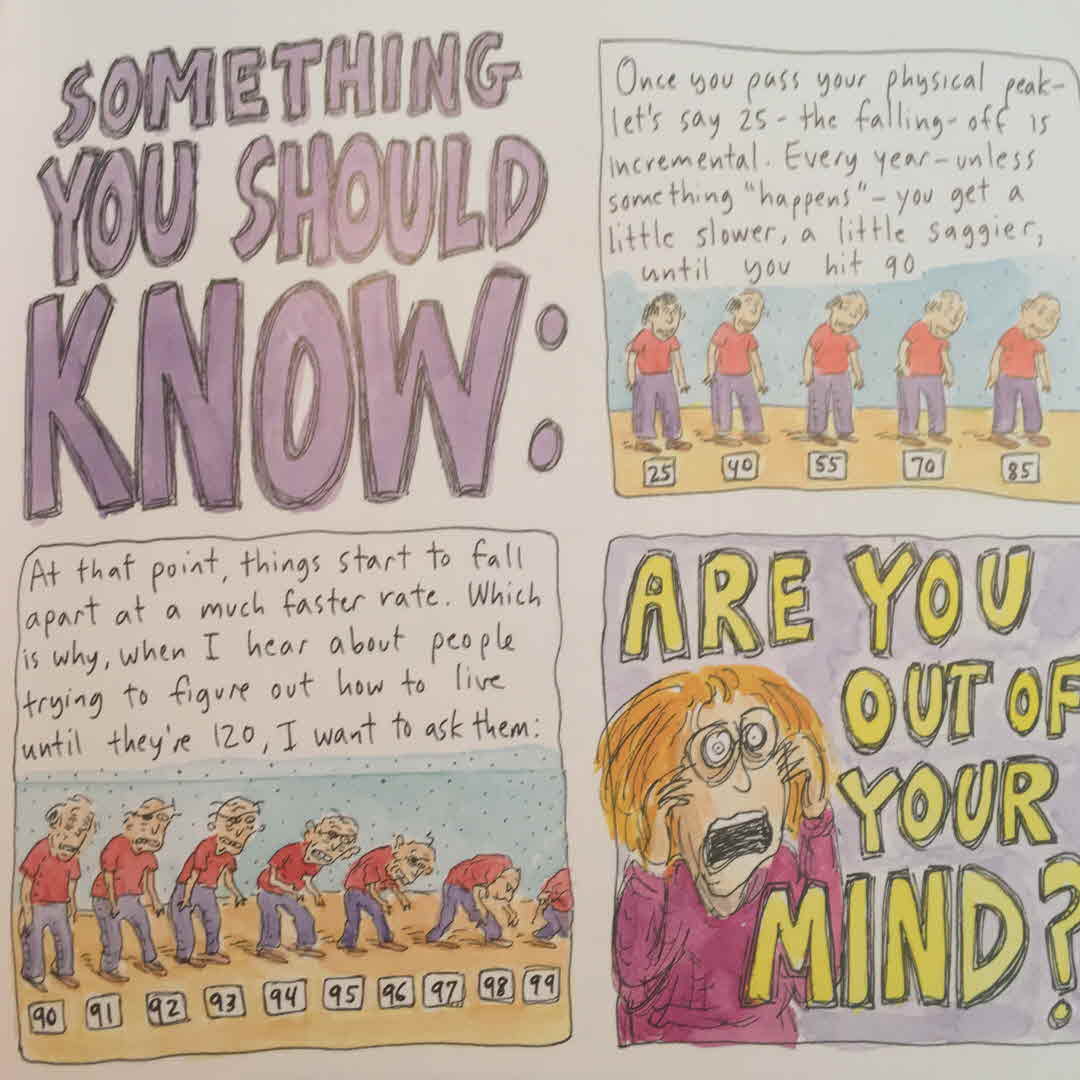 SOMETHING
YOU SHOULD
KNOW:
Once you pass your physical peak-
let's say 25 - the falling-off is
incremental. Every year - unless
something "happens" - you get a
little slower, a little saggier,
until you hit 90.
25 40 55 70 85
At that point, things start to fall
apart at a much faster rate. Which
is why, when I hear about people
trying to figure out how to live
until they're 120, I want to ask them:
90 91 92 93 94 95 96 97 98 99
ARE YOU
OUT OF
YOUR
MIND?